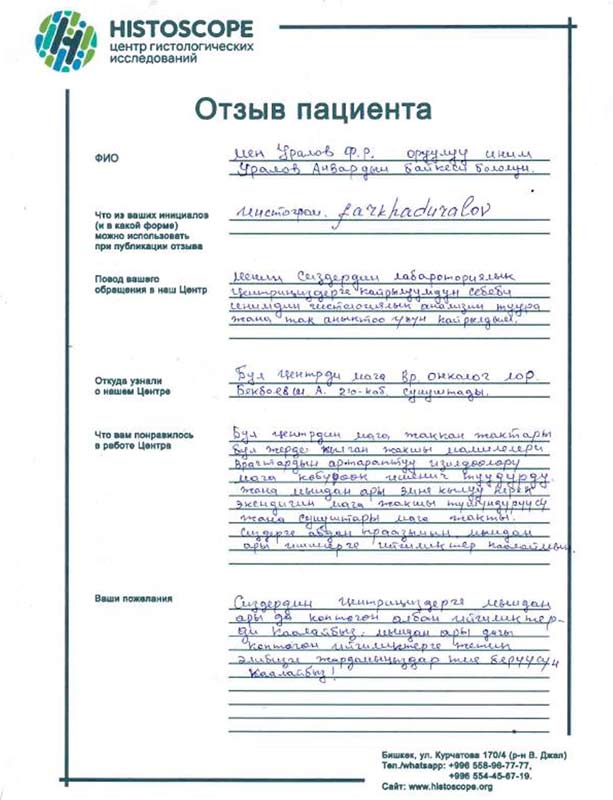 HISTOSCOPE
центр гистологических
исследований
Отзыв пациента
ФИО
Мен Уралов Ф.Р. оруулуу иним
Уралов Анвардын байкеси боломун.
Что из ваших инициалов
(и в какой форме)
можно использовать
при публикации отзыва
Инстограм. farkhaduralov
Повод вашего
обращения в наш Центр
Менин Сиздердин лабароториялык
центриңиздерге кайрылуумдун себеби
инимдин гистологиялык анализин туура
жана так аныктоо үчүн кайрылдым.
Откуда узнали
о нашем Центре
Бул центрди мага вр онколог лор.
А. 210-каб. сунуштады.
Что вам понравилось
в работе Центра
Бул центрдин мага жаккан жактары
Бул жерде кылган жакшы мамилелери
врачтардын ар тараптуу изилдоолору
мага кобуроок ишенич туудурду.
жана мындан ары эмне кылуу керек
экендигин мага жакшы тушундуруусу
жана сунуштары мага жакты.
Сиздерге абдан ыраазымын. мындан
ары ишинерге ийгиликтер каалаймын.
Ваши пожелания
Сиздердин центриңиздерге мындан
ары да коптогон албан ийгиликтер-
ди каалайбыз. мындан ары дагы
коптогон ийгиликтерге жетип
элибизге жардамыңыздар тие беруусун
каалайбыз!
Бишкек, ул. Курчатова 170/4 (р-н В. Джал)
Тел./whatsapp: +996 558-96-77-77,
+996 554-45-67-19.
Сайт: www.histoscope.org